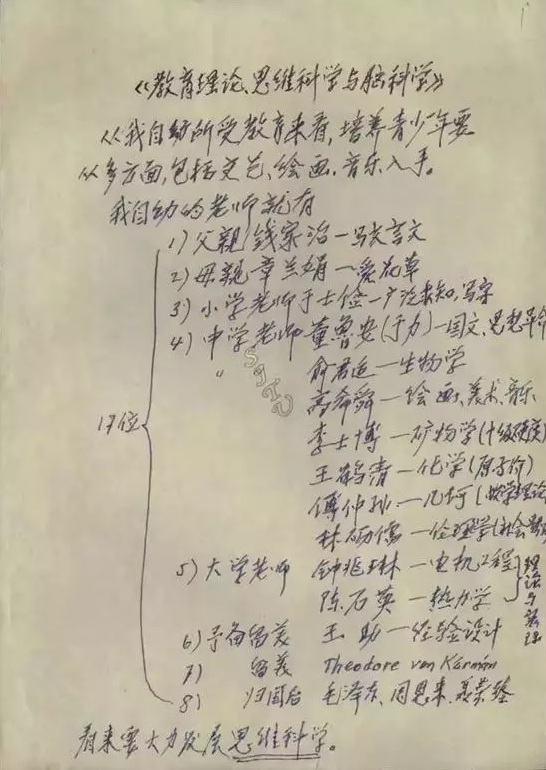 《教育理论、思维科学与脑科学》
从我自幼所受教育来看,培养青少年要
从多方面,包括文艺、绘画、音乐入手。
我自幼的老师就有
1)父親 钱家治—写文言文
2)母親 章兰娟—爱花草
3)小学老师于士俭—广泛求知,写字
4)中学老师 董鲁安(于力)—国文、思想革命
〃 俞君适—生物学
高希舜—绘画、美术、音乐
李士博—矿物学(十级硬度)
王鹤清—化学(原子价)
傅仲孙—几何(数学理论
林砺儒—伦理学(社会
5)大学老师 钟兆琳—电机工程
陈石英—热力学
理论与实理
6)予备留美 王助—经验设计
7) 留美 Theodore von Kármán
8) 归国后 毛泽东、周恩来、聂荣臻
17位
看来要大力发展思维科学。